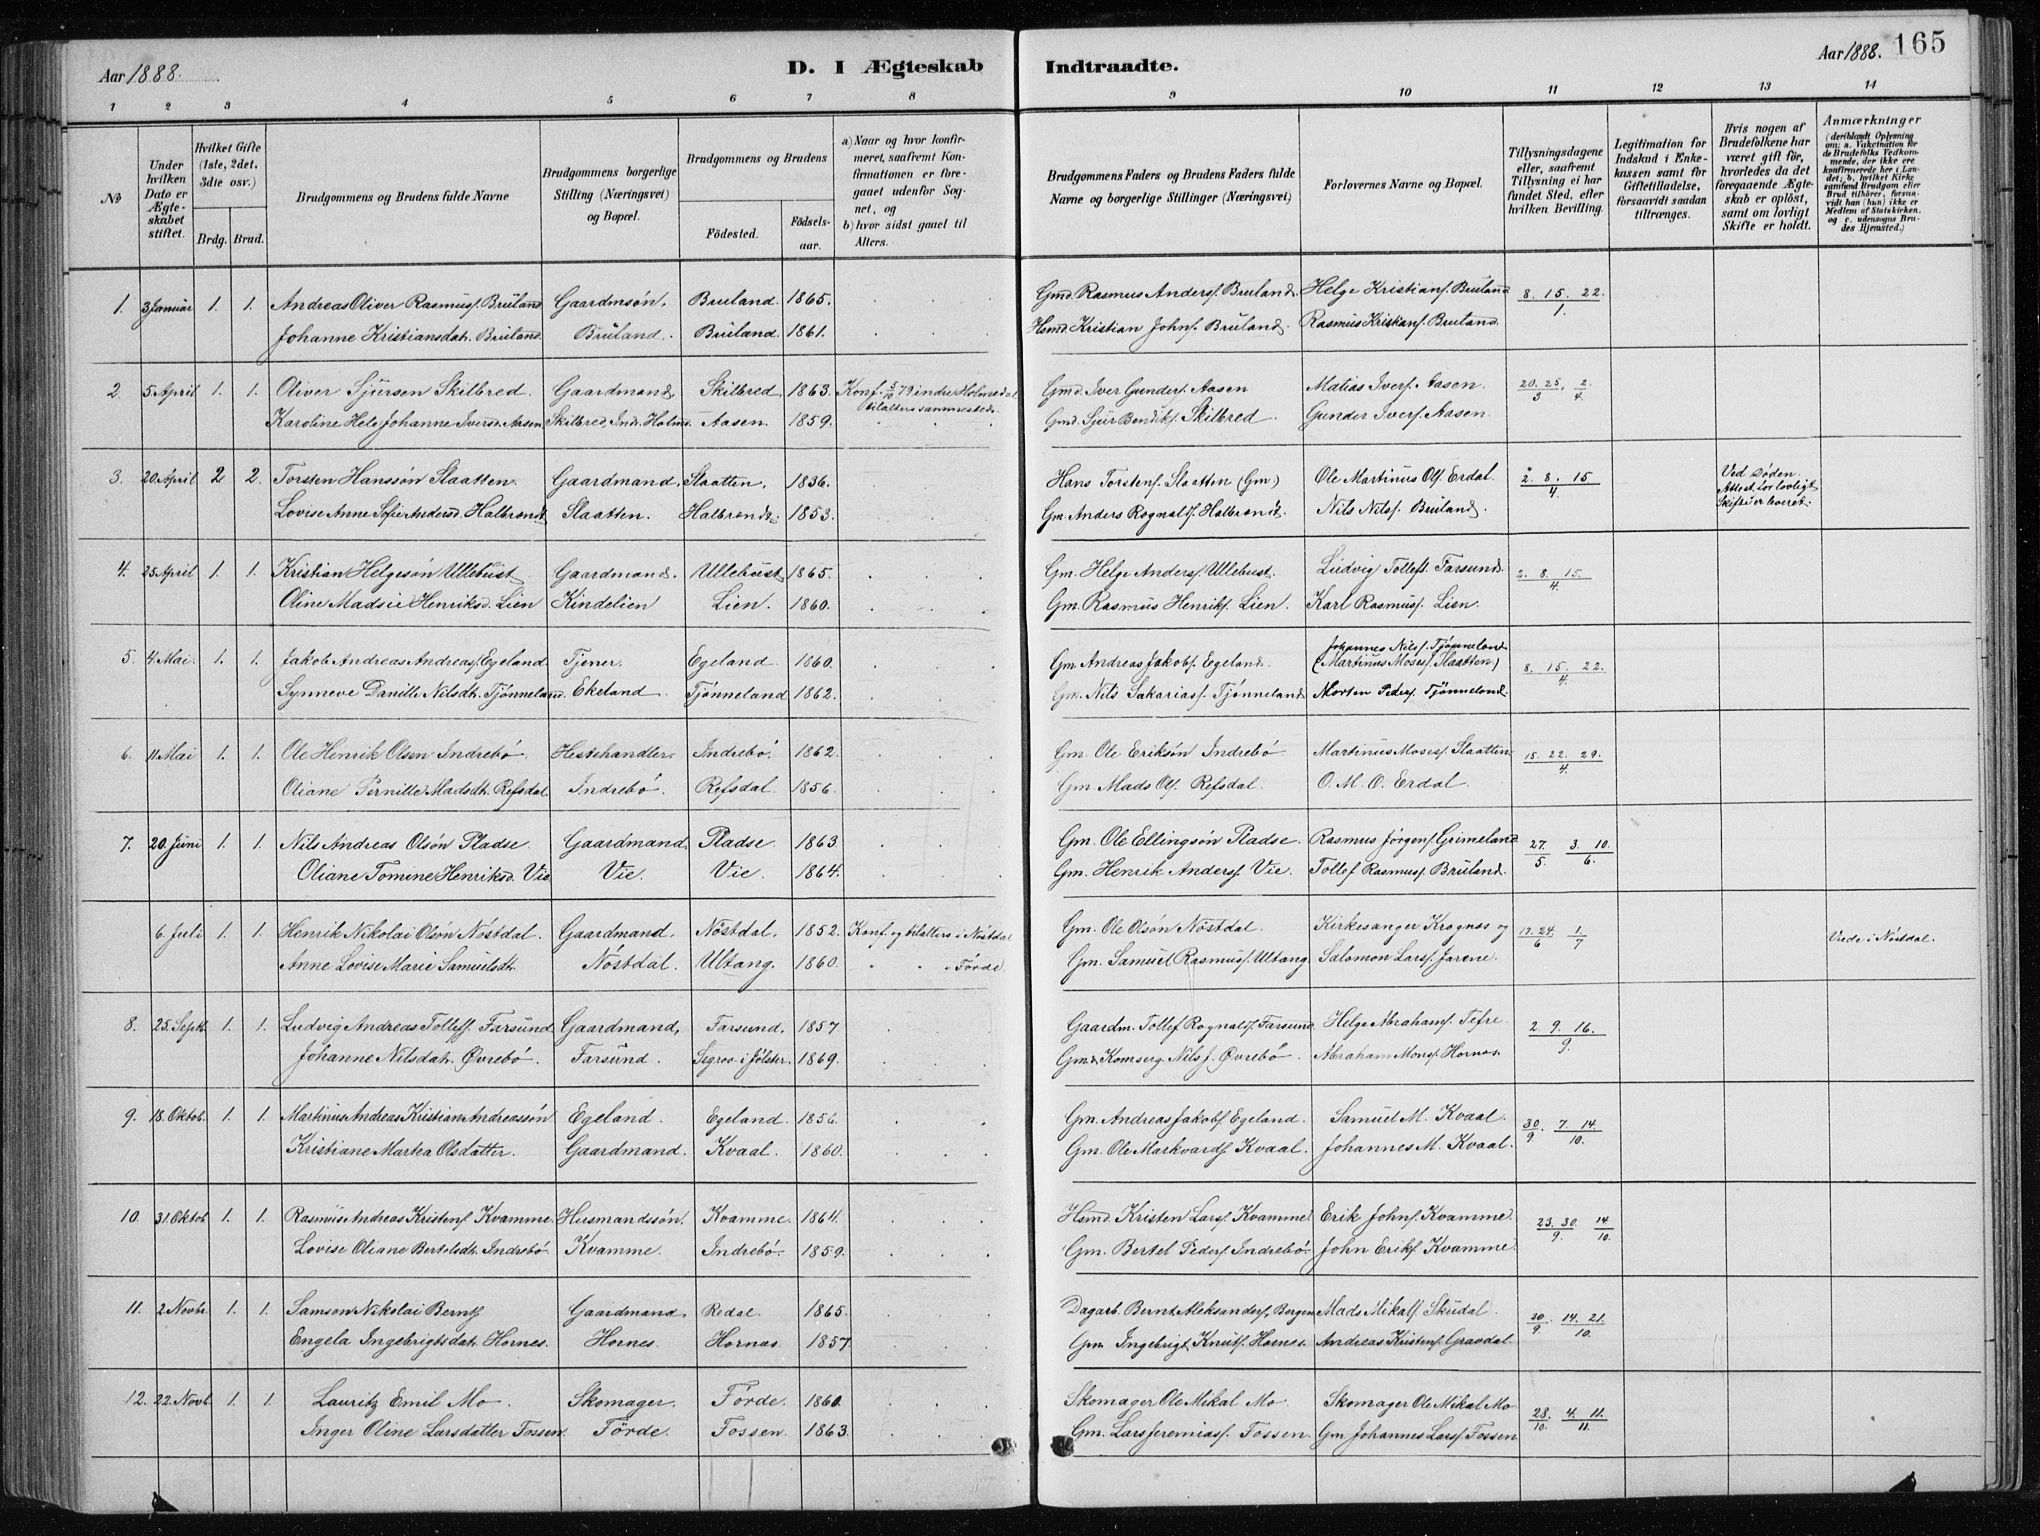 Aar 1888.
D. I Ægteskab Indtraadte.
Aar 1888. 165
1 2 3 4 5 6 7 8 9 10 11 12 13 14
No
Under hvilken Dato er Ægteskabet stiftet.
Hvilket Gifte (1ste, 2det, 3die osv.)
Brdg. Brud.
Brudgommens og Brudens fulde Navne
Brudgommens borgerlige Stilling (Næringsvei) og Bopæl.
Brudgommens og Brudens
Fødested.
Fødselsaar.
a) Naar og hvor konfirmeret, saafremt Konfirmationen er foregaaet udenfor Sognet, og
b) hvor sidst gaaet til Alters.
Brudgommens Faders og Brudens Faders fulde Navne og borgerlige Stillinger (Næringsvei)
Forlovernes Navne og Bopæl.
Tillysningsdagene eller, saafremt Tillysning ei har fundet Sted, efter hvilken Bevilling.
Legitimation for Indskud i Enkekassen samt for Giftetilladelse, forsaavidt saadan tiltrænges.
Hvis nogen af Brudefolkene har været gift før, hvorledes da det foregaaende Ægteskab er opløst, samt om lovligt Skifte er holdt.
Anmærkninger (deriblandt Oplysning om: a. Vakcination for de Brudefolks Vedkommende, der ikke ere konfirmerede her i Landet; b, hvilket Kirkesamfund Brudgom eller Brud tilhører, forsaavidt han (hun) ikke er Medlem af Statskirken, og c. udensogns Brudes Hjemsted.)
1. 3 Januar 1. 1. Andreas Oliver Rasmuss. Bruland Gaardmsøn. Bruland. 1865. Gmd. Rasmus Anders. Bruland. Helge Kristians. Bruland 8. 15. 22.
Johanne Kristiansdat. Bruland Bruland. Bruland. 1861. Hsmd. Kristian Johns. Bruland. Rasmus Kristians. Bruland. 1.
2. 5. April 1. 1. Oliver Sjursen Skilbred. Gaardmand, Skilbred. 1863. Konf. 5/10 79 i indre Holmedal Gmd. Iver Gunders. Aasen Matias Ivers. Aasen. 20. 25. 2.
Karoline Hele Johanne Iversd. Aasen. Skilbred, Ind. Holm. Aasen. 1859. tilalters sammesteds. Gmd. Sjur Bendiks. Skilbred Gunder Ivers. Aasen. 3 4.
3. 20. April 2 2. Torsten Hanssøn Slaatten. Gaardmand, Slaatten. 1836. Hans Torstens. Slaatten (Gm.) Ole Martinus Ols. Erdal. 2. 8. 15 Ved Døden.
Lovise Anne Sofie Andersd. Halbrendt. Slaatten. Halbrendt. 1853. Gm. Anders Rognalds. Halbrendt. Nils Nilss. Bruland. 4. Attest for lovligt Skifte er leveret.
4. 25. April 1. 1. Kristian Helgesøn Ullebust Gaardmand. Ullebust 1865. Gm. Helge Anders. Ullebust. Ludvig Tollefs. Farsund. 2. 8. 15.
Oline Madsie Henriksd. Lien Kindelien Lien. 1860. Gm. Rasmus Henriks. Lien. Karl Rasmuss. Lien. 4
5. 4. Mai. 1. 1. Jakob Andreas Andreass. Egeland. Tjener. Egeland. 1860. Gm. Andreas Jakobs. Egeland. Johannes Nils. Tjønneland (Martinus Moses. Slaatten) 8. 15. 22.
Synneve Danille Nilsdt. Tjønneland. Ekeland. Tjønneland. 1862. Gm. Nils Sakarias. Tjønneland Morten Peders. Tjønneland. 4.
6. 11. Mai 1. 1. Ole Henrik Olsen Indrebó. Hestehandler. Indrebó. 1862. Gm. Ole Eriksón Indrebó Martinus Moses. Slaatten. 15. 22. 29.
Oliane Pernille Madsdt. Refsdal. Indrebó. Refsdal. 1856. Gm. Mads Ols. Refsdal. O. M. O. Erdal. 4.
7. 20. Juni 1. 1. Nils Andreas Olsón Pladse. Gaardmand Pladse 1863. Gm. Ole Ellingsón Pladse. Rasmus Jørgens. Grimeland. 27. 3. 10.
Oliane Tomine Henriksd. Vie Vie. Vie. 1864. Gm. Henrik Anders. Vie. Tollef Rasmuss. Bruland. 5 6.
6. Juli 1. 1. Henrik Nikolai Olsón Nóstdal. Gaardmand. Nóstdal. 1852. Konf. og tilalters i Nóstdal Gm. Ole Olsón Nóstdal. Kirkesanger Krognæs og 17. 24. 1 Viede i Nóstdal.
Anne Lovise Marie Samuelsdt. Nóstdal. Ultang. 1860. " " i Førde Gm. Samuel Rasmuss. Ultang. Salomon Lars. Jarene. 6 7
8. 25. Septb. 1. 1. Ludvig Andreas Tollefs. Farsund. Gaardmand, Farsund. 1857. Gaardm. Tollef Rognalds. Farsund. Helge Abrahams. Tefre. 2. 9. 16.
Johanne Nilsdat. Øvrebó. Farsund. Segrov i Jølster. 1869. Gmd. Komserg. Nils J. Øvrebó. Abraham Mons. Hornes. 9.
9. 18. Oktob. 1. 1. Martinus Andreas Kristian Andreassón Egeland. Egeland. 1856. Gm. Andreas Jakobs. Egeland. Samuel M. Kvaal. 30 7. 14.
Kristiane Martea Olsdatter. Gaardmand. Kvaal. 1860. Gm. Ole Markvards. Kvaal. Johannes M. Kvaal. 9 10.
10. 31. Oktob. 1. 1. Rasmus Andreas Kristens. Kvamme. Husmandssón. Kvamme. 1864. Hsmd. Kristen Lars. Kvamme. Erik Johns. Kvamme. 23. 30. 14
Lovise Oliane Bertelsdt. Indrebó. Kvamme. Indrebó. 1859. Gm. Bertel Peders. Indrebó. John Eriks. Kvamme. 9. 10.
11. 2. Novbr. 1. 1. Samson Nikolai Bernts. Gaardmand. Redal. 1865. Dagarb. Bernt Aleksanders., Bergen Mads Mikals. Skudal. 30 14. 21.
Engela Ingebrigtsdat. Hornes. Hornes. Hornas. 1857. Gm. Ingebrigt Knuts. Hornes. Andreas Kristens. Gravdal. 9. 10.
12. 22. Novb. 1. 1. Lauritz Emil Mo. Skomager. Førde. 1860. Skomager Ole Mikal Mo. Skomager Ole Mikal Mo. 28. 4. 11.
Inger Oline Larsdatter Fossen. Førde. Fossen. 1863. Gm. Lars Jeremias. Fossen. Gm. Johannes Lars. Fossen 10. 11.